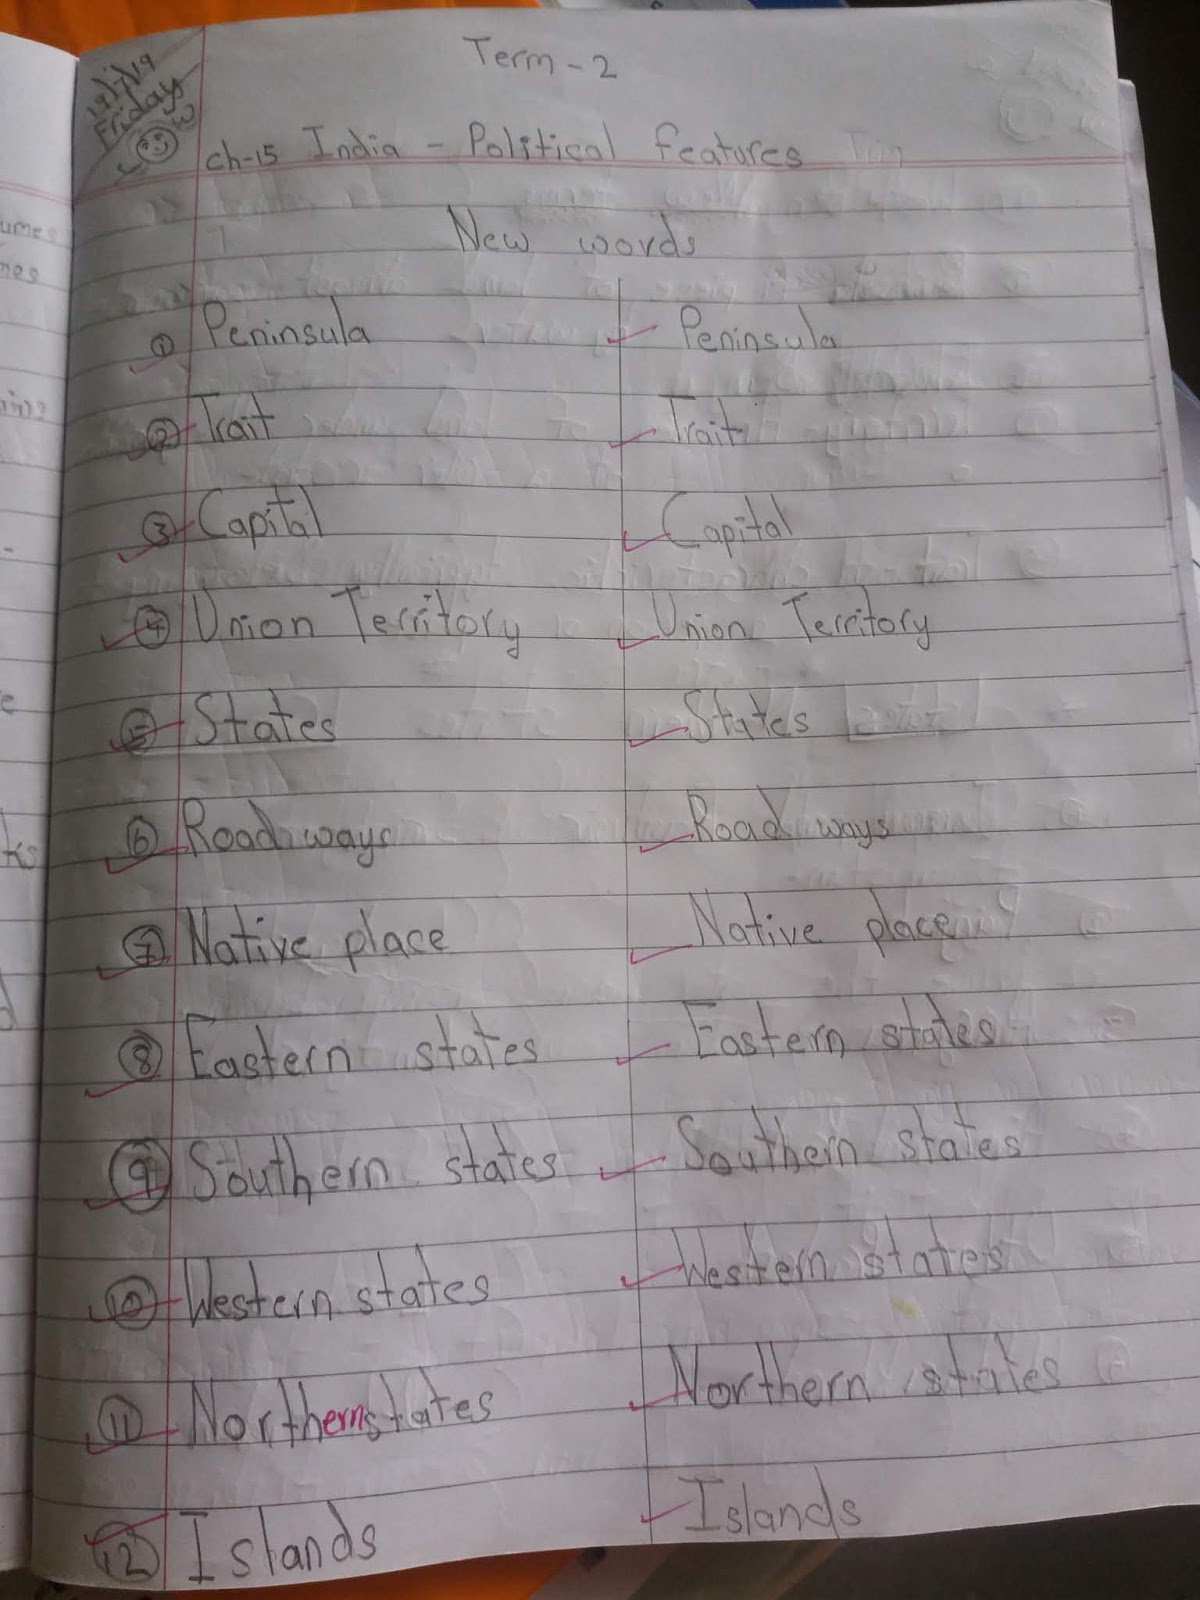 Term - 2
19/7/19
Friday
ch-15 India - Political features
New words
① Peninsula Peninsula
② Trait Trait
③ Capital Capital
④ Union Territory Union Territory
⑤ States States
⑥ Road ways Road ways
⑦ Native place Native place
⑧ Eastern states Eastern states
⑨ Southern states Southern states
⑩ Western states Western states
⑪ Northern states Northern states
⑫ Islands Islands